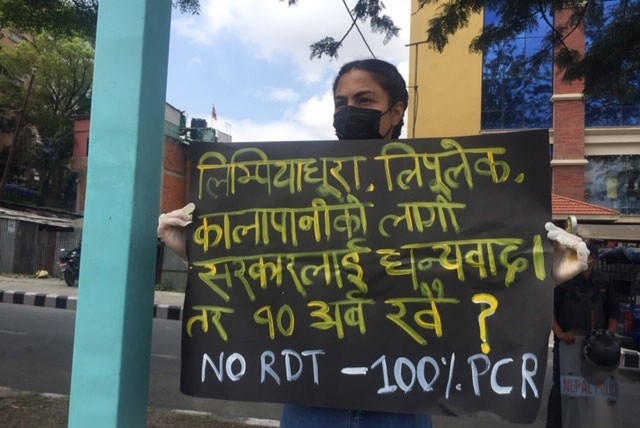 लिम्पियाधुरा, लिपुलेक,
कालापानीको लागी
सरकारलाई धन्यवाद।
तर १० अर्ब खै ?
NO RDT - 100% PCR
NEPAL